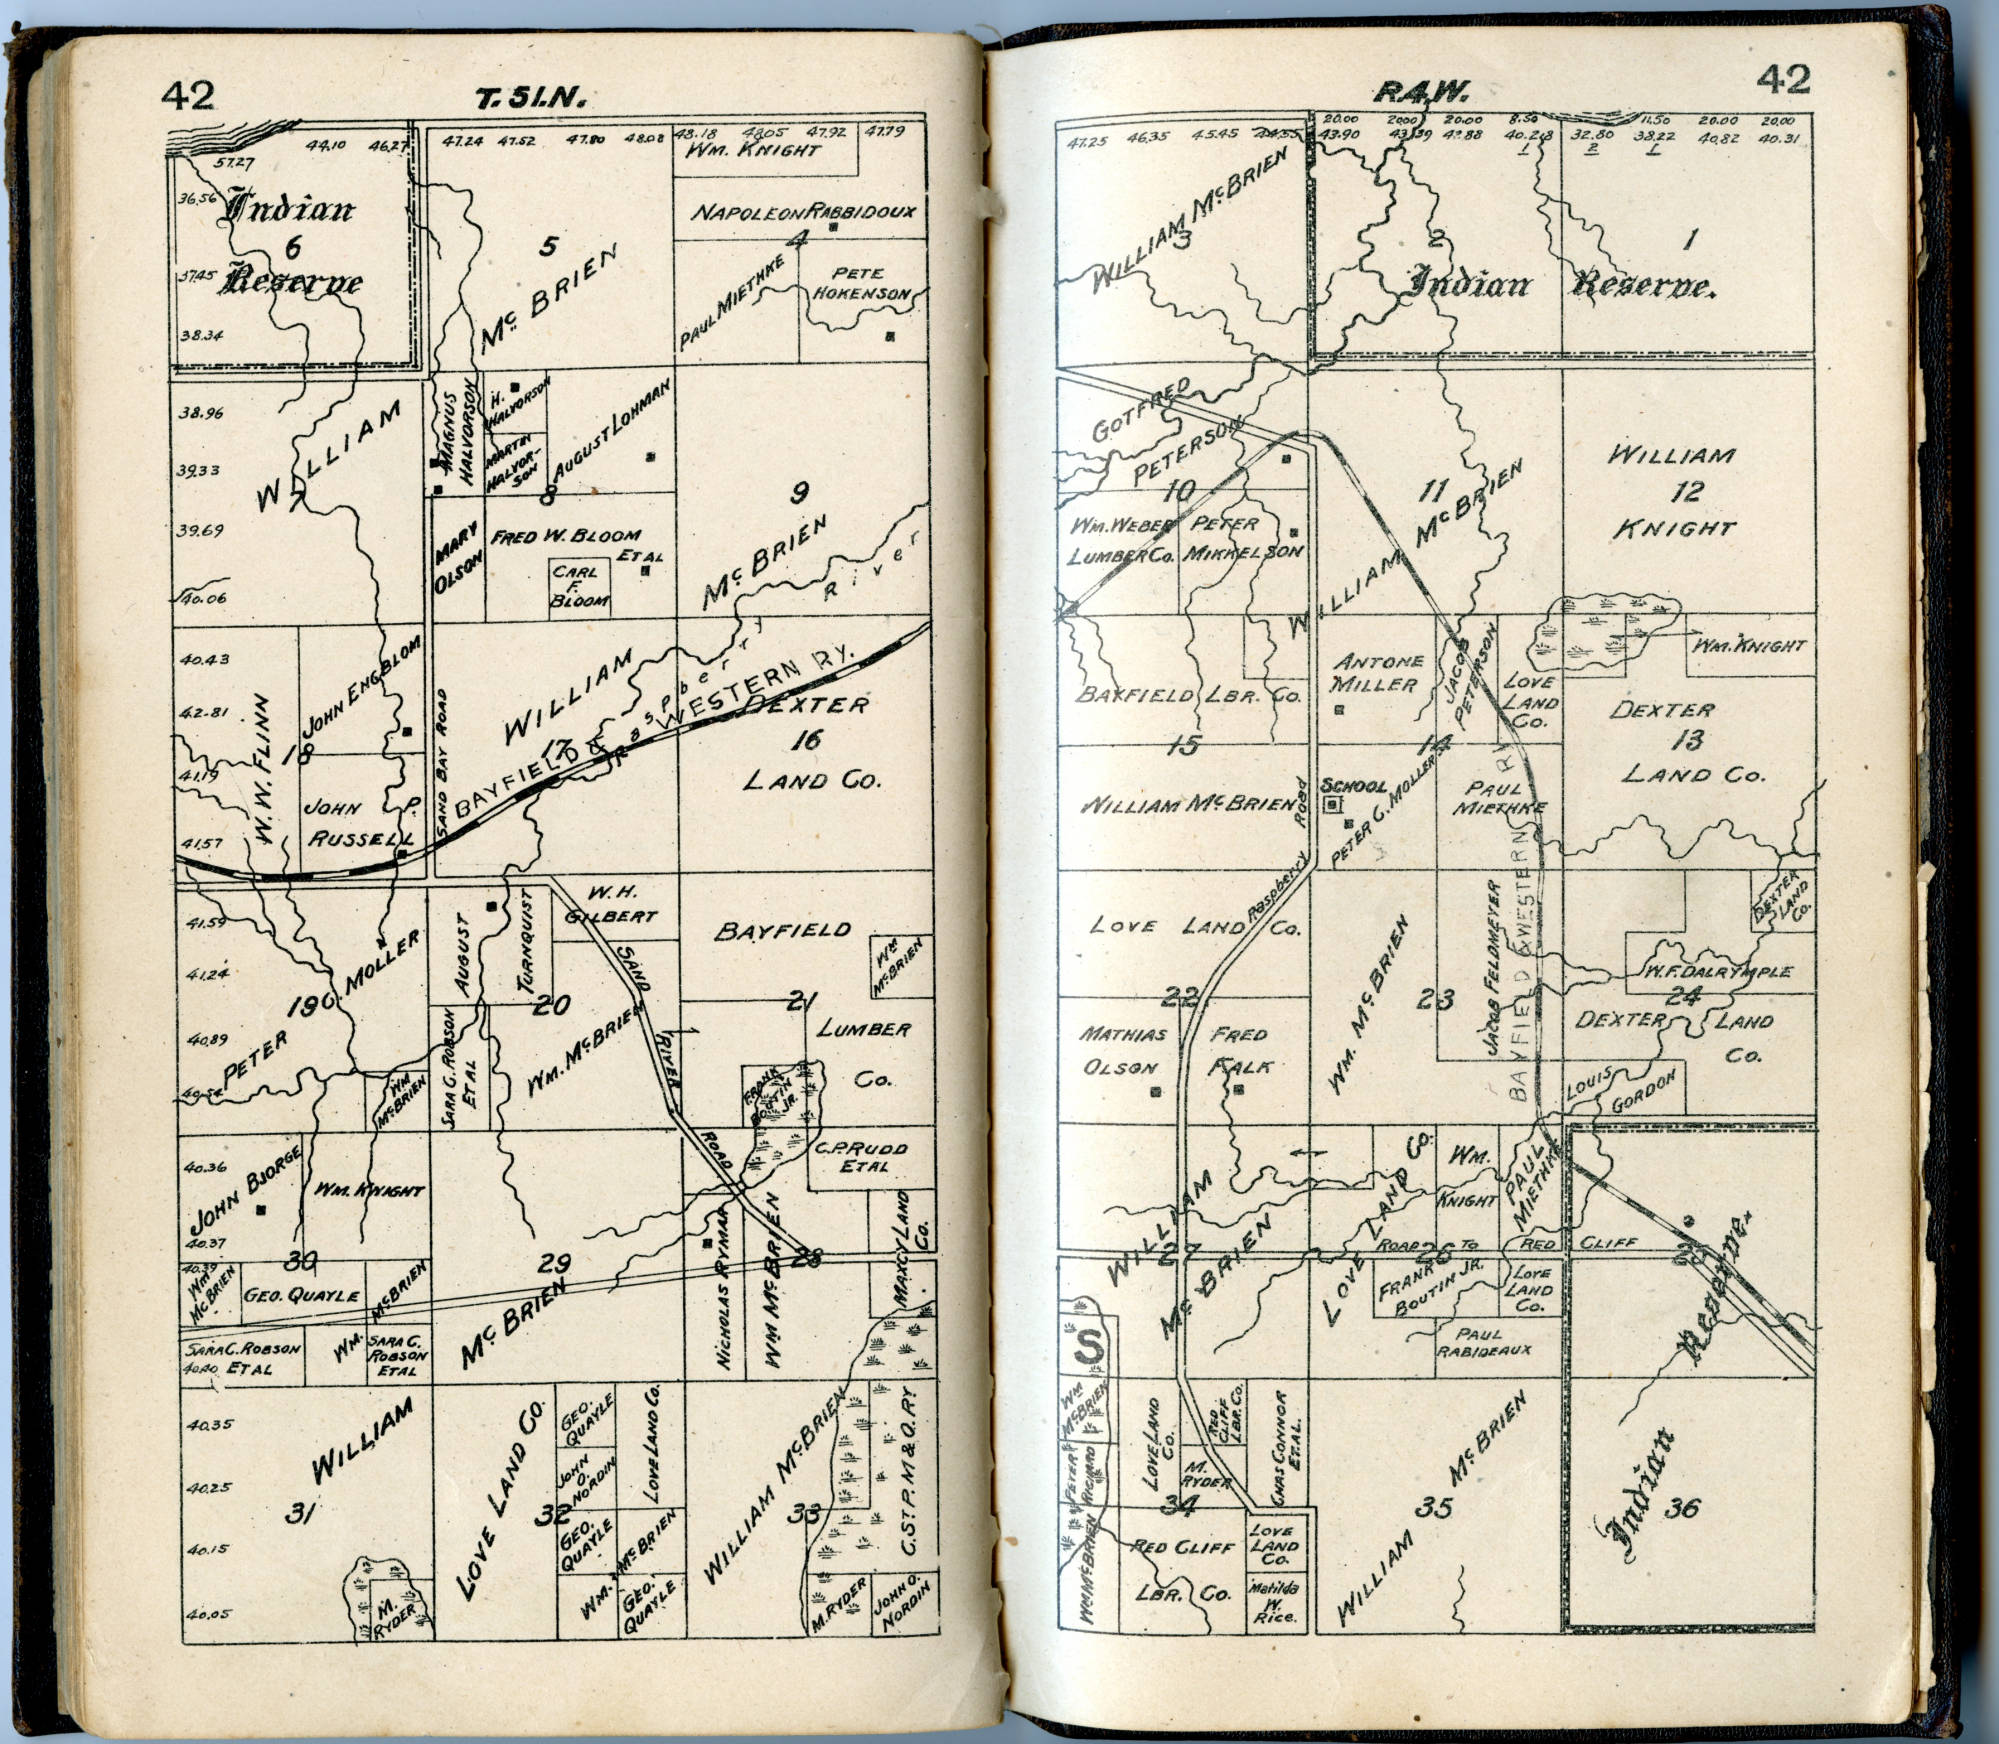 42
T. 51. N.
44.10 46.27
47.24 47.52 47.80 48.08 48.18 48.05 47.92 47.79
57.27
36.56
Indian
6
Reserve
37.45
38.34
5
Mc BRIEN
WM. KNIGHT
NAPOLEON RABBIDOUX
4
PAUL MIETHKE
PETE
HOKENSON
38.96
39.33
39.69
40.06
WILLIAM
7
MAGNUS
HALVORSON
H.
HALVORSON
MARTIN
HALVOR-
SON
AUGUST LOHMAN
8
MARY
OLSON
FRED W. BLOOM
ET AL
CARL
F.
BLOOM
9
Mc BRIEN
Raspberry River
40.43
42.81
41.19
41.57
W. W. FLINN
18
JOHN ENGBLOM
JOHN P.
RUSSELL
SAND BAY ROAD
WILLIAM
17
BAYFIELD & WESTERN RY.
DEXTER
16
LAND CO.
41.59
41.24
40.89
40.54
PETER C. MOLLER
19
WM
McBRIEN
AUGUST
TURNQUIST
20
SARA C. ROBSON
ET AL
W. H.
GILBERT
WM. McBRIEN
SAND RIVER ROAD
BAYFIELD
21
LUMBER
CO.
WM
McBRIEN
FRANK
BOUTIN
JR.
40.36
40.37
40.39
40.40
JOHN BJORGE
WM. KNIGHT
30
WM
McBRIEN
GEO. QUAYLE
WM. McBRIEN
SARA C. ROBSON
ET AL
SARA C.
ROBSON
ET AL
29
Mc BRIEN
C. P. RUDD
ET AL
NICHOLAS RYMAR
WM McBRIEN
28
MAXCY LAND
CO.
40.35
40.25
40.15
40.05
WILLIAM
31
M.
RYDER
LOVE LAND CO.
32
GEO.
QUAYLE
JOHN
O.
NORDIN
GEO.
QUAYLE
LOVE LAND CO.
WM. McBRIEN
GEO.
QUAYLE
WILLIAM McBRIEN
33
C. ST. P. M & O. RY
M. RYDER
JOHN O.
NORDIN
R. 4. W.
42
20.00 20.00 20.00 8.50 11.50 20.00 20.00
47.25 46.35 45.45 44.55 43.90 43.39 42.88 40.28 32.80 38.22 40.82 40.31
1 2 1
WILLIAM McBRIEN
3
2
1
Indian Reserve.
GOTFRED
PETERSON
10
WM. WEBER
LUMBER CO.
PETER
MIKKELSON
11
WILLIAM McBRIEN
WILLIAM
12
KNIGHT
BAYFIELD LBR. CO.
15
WILLIAM McBRIEN
Raspberry Road
ANTONE
MILLER
JACOB
PETERSON
LOVE
LAND
CO.
14
SCHOOL
PETER C. MOLLER
PAUL
MIETHKE
WM. KNIGHT
DEXTER
13
LAND CO.
BAYFIELD & WESTERN RY
LOVE LAND CO.
22
MATHIAS
OLSON
FRED
FALK
WM. McBRIEN
23
JACOB FELDMEYER
DEXTER
LAND
CO.
W. F. DALRYMPLE
24
DEXTER LAND
CO.
LOUIS
GORDON
WILLIAM
27
Mc BRIEN
S
LOVE LAND CO.
WM.
KNIGHT
PAUL
MIETHKE
ROAD TO RED CLIFF
26
FRANK
BOUTIN JR.
LOVE
LAND
CO.
PAUL
RABIDEAUX
25
Indian Reserve.
36
WM
McBRIEN
PETER
RICHARD
WM McBRIEN
LOVE LAND
CO.
RED
CLIFF
LBR. CO.
M.
RYDER
34
CHAS CONNOR
ET. AL.
RED CLIFF
LBR. CO.
LOVE
LAND
CO.
Matilda
W.
Rice.
WILLIAM McBRIEN
35